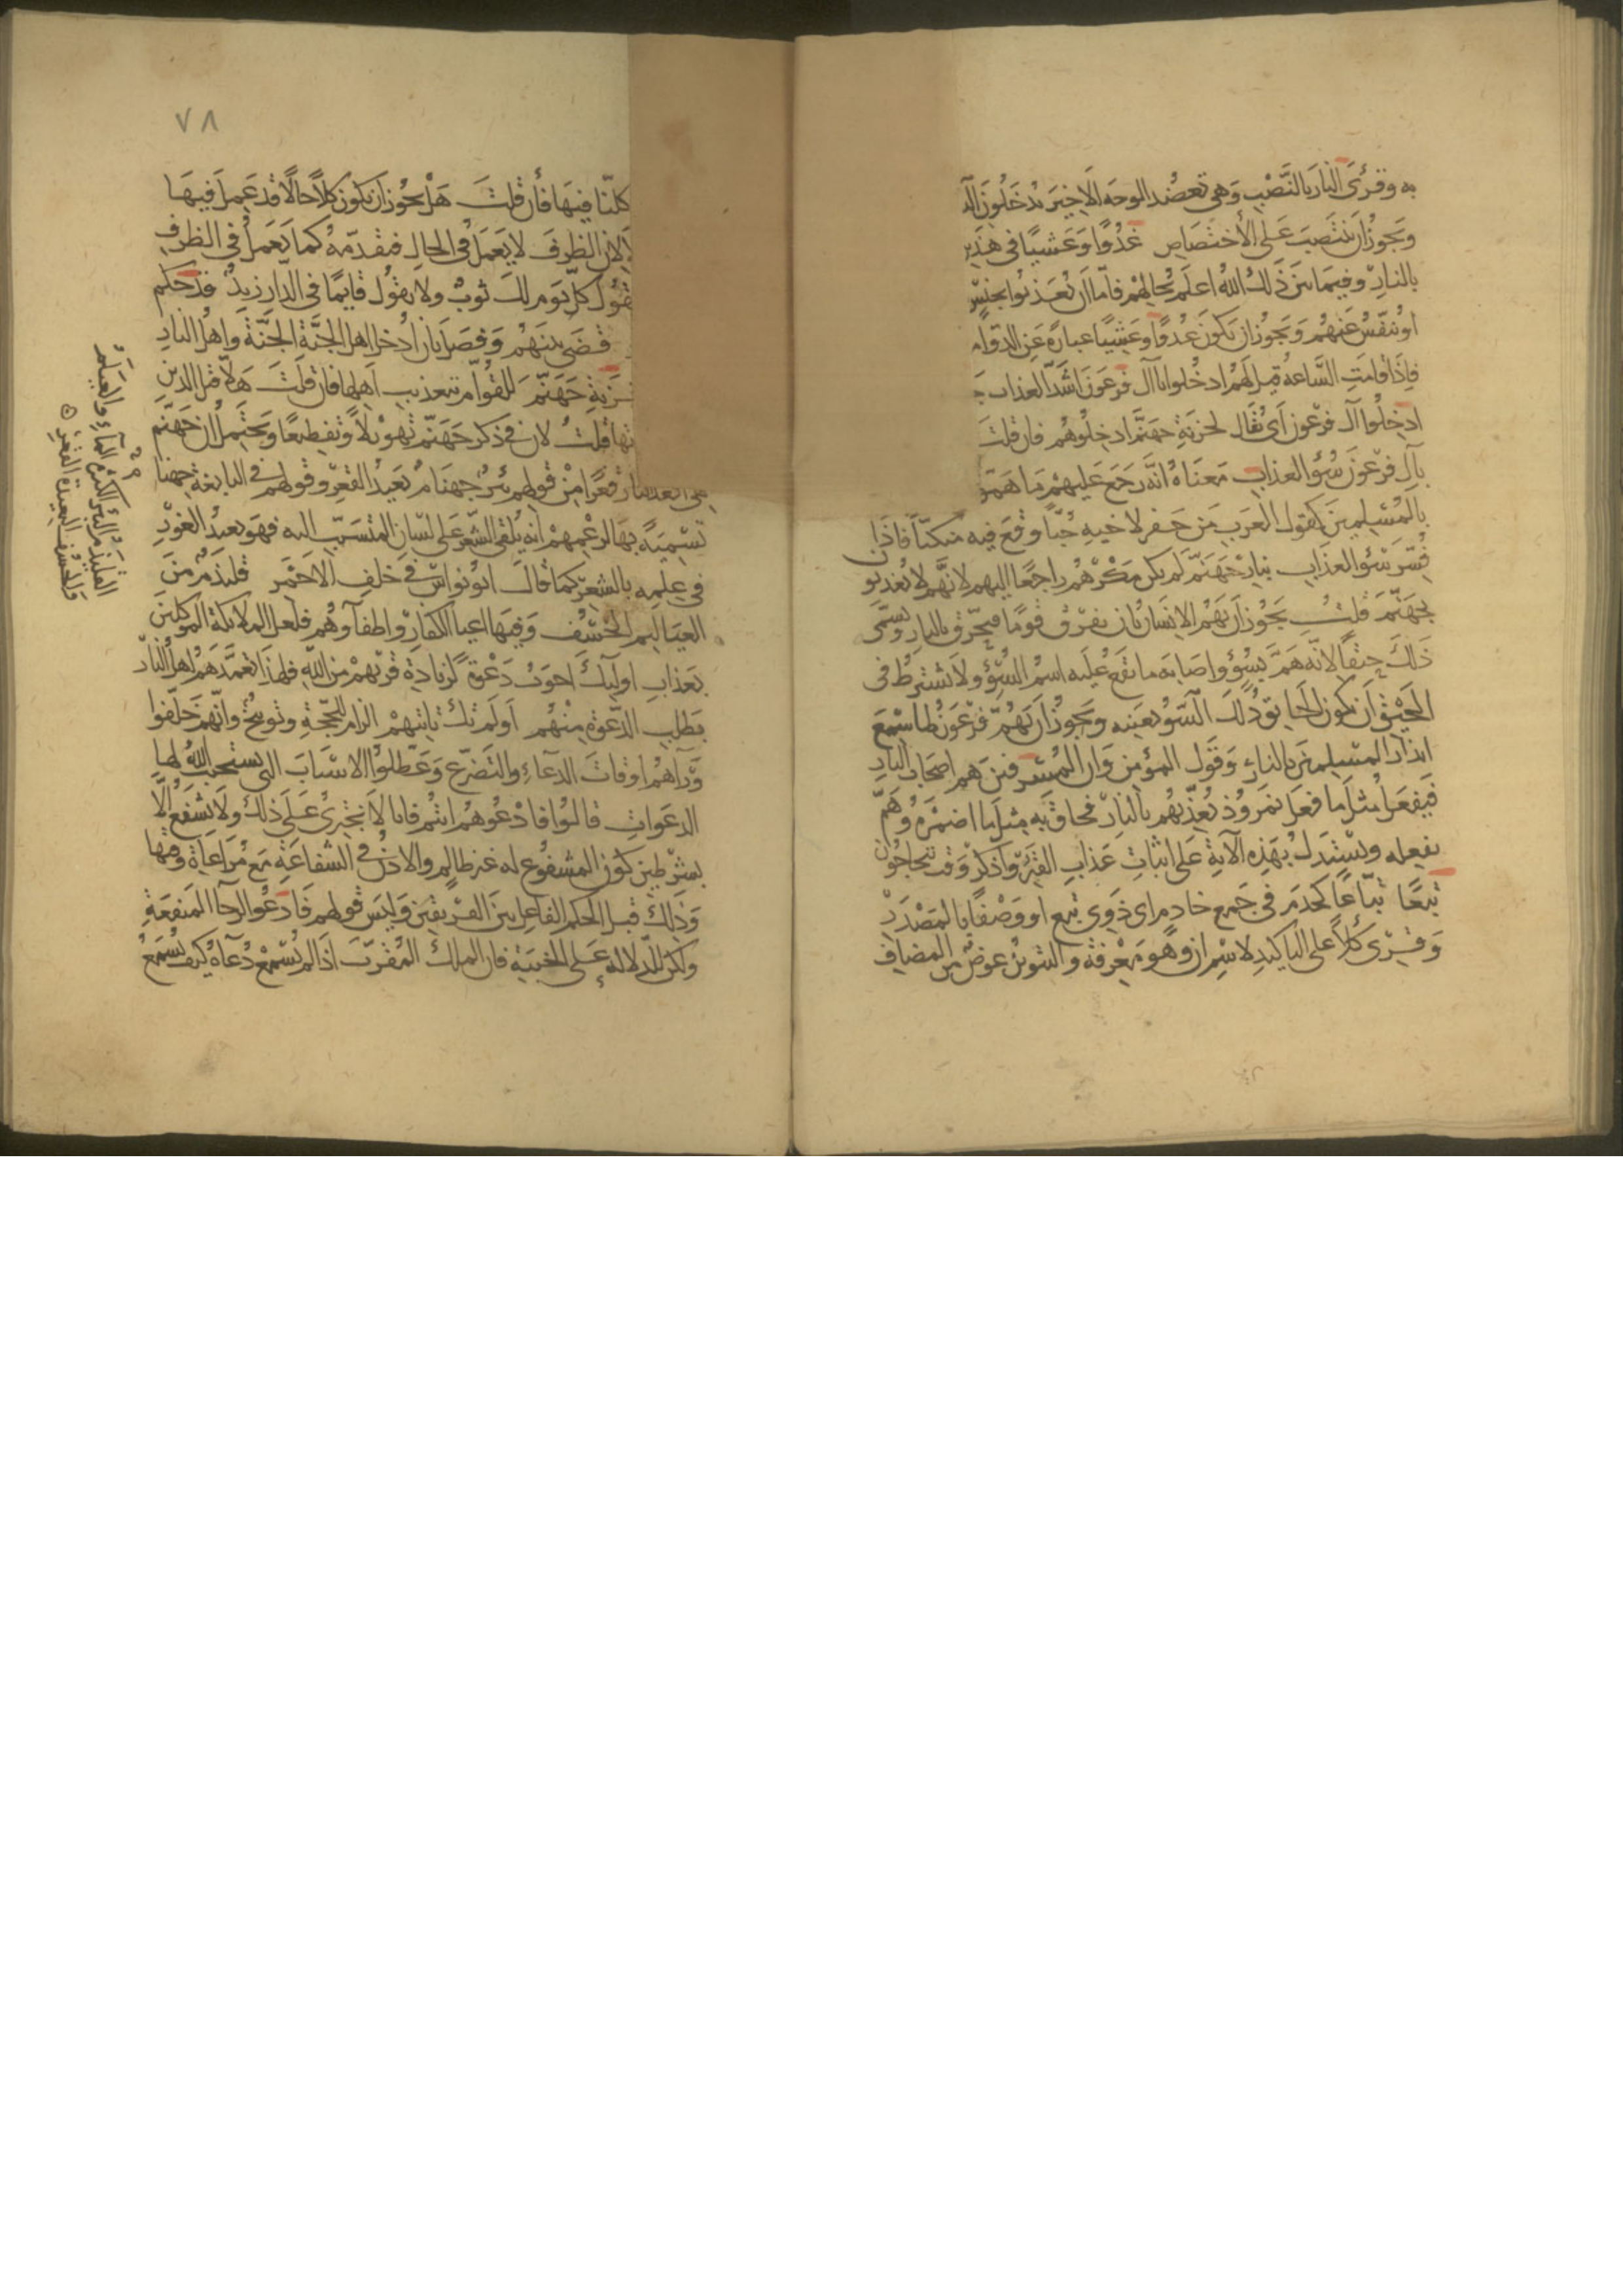 به وقرئ النار بالنصب وهي تعضد الوجه الاخير يدخلون
ويجوز ان ينتصب على الاختصاص غدوا وعشيا في هذين
بالنار وفيما بين ذلك الله اعلم بحالهم فاما ان يعذبوا بجنس
او ينفس عنهم ويجوز ان يكون غدوا وعشيا عبارة عن الدوام
فاذا قامت الساعة قيل لهم ادخلوا يا آل فرعون اشد العذاب
ادخلوا آل فرعون اي يقال لخزنة جهنم ادخلوهم فان قلت
بآل فرعون سوء العذاب معناه انه رجع عليهم ما هموا
بالمسلمين كقول العرب من حفر لاخيه جبا وقع فيه منكبا فاذا
فسر سوء العذاب بنار جهنم لم يكن مكرهم راجعا اليهم لانهم لا يعذبون
بجهنم قلت يجوز ان يهم الانسان بان يغرق قوما فيحرق بالنار ويسمى
ذلك حيقا لانه هم بسوء واصابه ما يقع عليه اسم السوء ولا يشترط في
الحيق ان يكون الحايق ذلك السوء بعينه ويجوز ان يهم فرعون لما سمع
انذار المسلمين بالنار وقول المؤمن وان المسرفين هم اصحاب النار
فيفعل مثل ما فعل نمروذ يعذبهم بالنار فحاق به مثل ما اضمره وهم
بفعله ويستدل بهذه الآية على اثبات عذاب القبر واذكر وقت يتحاجون
تبعا تباعا كخدم في جمع خادم اي ذوي تبع او وصفا بالمصدر
وقرئ كلا على التاكيد لاسم ان وهو معرفة والتنوين عوض من المضاف
٧٨
كلنا فيها فان قلت هل يجوز ان يكون كلا حالا قد عمل فيها
لان الظرف لا يعمل في الحال متقدمة كما يعمل في الظرف
تقول كل يوم لك ثوب ولا يقول قايما في الدار زيد قد حكم
قضى بينهم وفصل بان ادخل اهل الجنة الجنة واهل النار
لخزنة جهنم للقوام بتعذيب اهلها فان قلت هلا قيل الذين
قلت لان في ذكر جهنم تهويلا وتفظيعا ويحتمل ان جهنم
هي ابعد النار قعرا من قولهم بئر جهنام بعيد القعر وقولهم في النابغة جهنام
تسمية بها لزعمهم انه يلقي الشعر على لسان المنتسب اليه فهو بعيد الغور
في علمه بالشعر كما قال ابو نواس في خلف الاحمر قليذم من
العياليم الخسف وفيها اعيا الكفار واطفاؤهم فلعل الملائكة الموكلين
بعذاب اولئك اجوب دعوة لزيادة قربهم من الله فلهذا تعمدهم اهل النار
بطلب الدعوة منهم اولم تك تاتيهم الزام للحجة وتوبيخ وانهم خلفوا
ورآهم اوقات الدعاء والتضرع وعطلوا الاسباب التي يستجيب الله لها
الدعوات قالوا فادعوهم انتم فانا لا نجترئ على ذلك ولا نشفع الا
بشرطين كون المشفوع له غير ظالم والاذن في الشفاعة مع مراعاة وقتها
وذلك قبل الحكم الفاعل بين الفريقين وليس قولهم فادعوا لرجا المنفعة
ولكن للدلاله على الخيبة فان الملك المقرب اذا لم يسمع دعاه كيف يسمع
القليذم البئر الكثيرة الماء والعيلم
والخسف البعيدة القعر